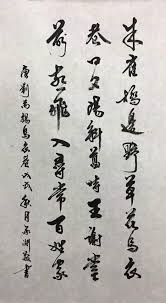 朱雀桥邊野草花乌衣
巷口夕陽斜舊時王謝堂
前燕飛入尋常百姓家
唐劉禹錫烏衣巷